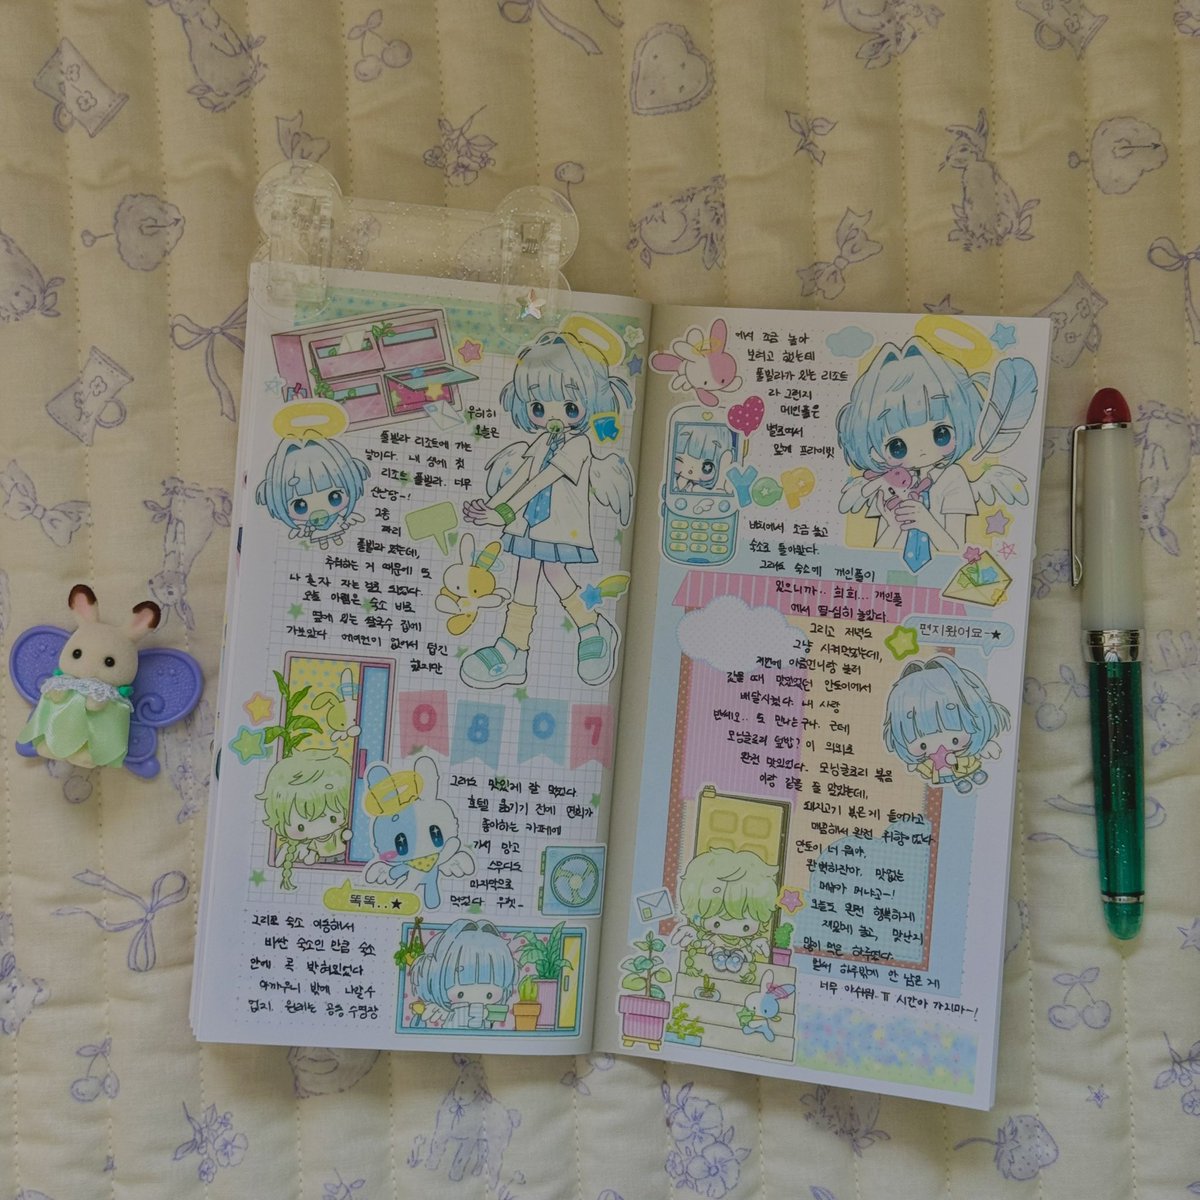 우히히
오늘은
풀빌라 리조트에 가는
날이다. 내 생에 첫
리조트 풀빌라. 너무
신난당~!
2층
짜리
풀빌라 였는데,
추워하는 거 때문에 또
나 혼자 자는 걸로 되었다.
오늘 아침은 숙소 바로
옆에 있는 쌀국수 집에
가보았다 에어컨이 없어서 덥긴
했지만
0807
그래도 맛있게 잘 먹었다
호텔 옮기기 전에 언니가
좋아하는 카페에
가서 망고
스무디도
마지막으로
먹었다 우헷~
똑똑..★
그리고 숙소 이동해서
비싼 숙소인 만큼 숙소
안에 콕 박혀있었다
아까우니 밖에 나갈수
없지. 원래는 공용 수영장
에서 조금 놀아
보려고 했는데
풀빌라가 있는 리조트
라 그런지
메인풀은
별로여서
앞에 프라이빗
YOP
비치에서 조금 놀고
숙소로 돌아왔다.
그래도 숙소에 개인풀이
있으니까.. 희희... 개인풀
에서 열심히 놀았다.
편지왔어요~★
그리고 저녁도
그냥 시켜먹었는데,
저번에 아줌마랑 놀러
갔을 때 맛있었던 안토이에서
배달시켰다. 내 사랑
반쎄오.. 또 만나는구나. 근데
모닝글로리 덮밥? 이 의외로
완전 맛있었다. 모닝글로리 볶음
이랑 같을 줄 알았는데,
돼지고기 볶은게 들어가고
매콤해서 완전 취향이었다
안토이 너 뭐야,
완벽하잖아. 맛없는
메뉴가 머냐고~!
오늘도 완전 행복하게
재밌게 놀고, 맛난거
많이 먹은 하루였다.
벌써 하루밖에 안 남은 게
너무 아쉬워.. ㅠ 시간아 가지마~!